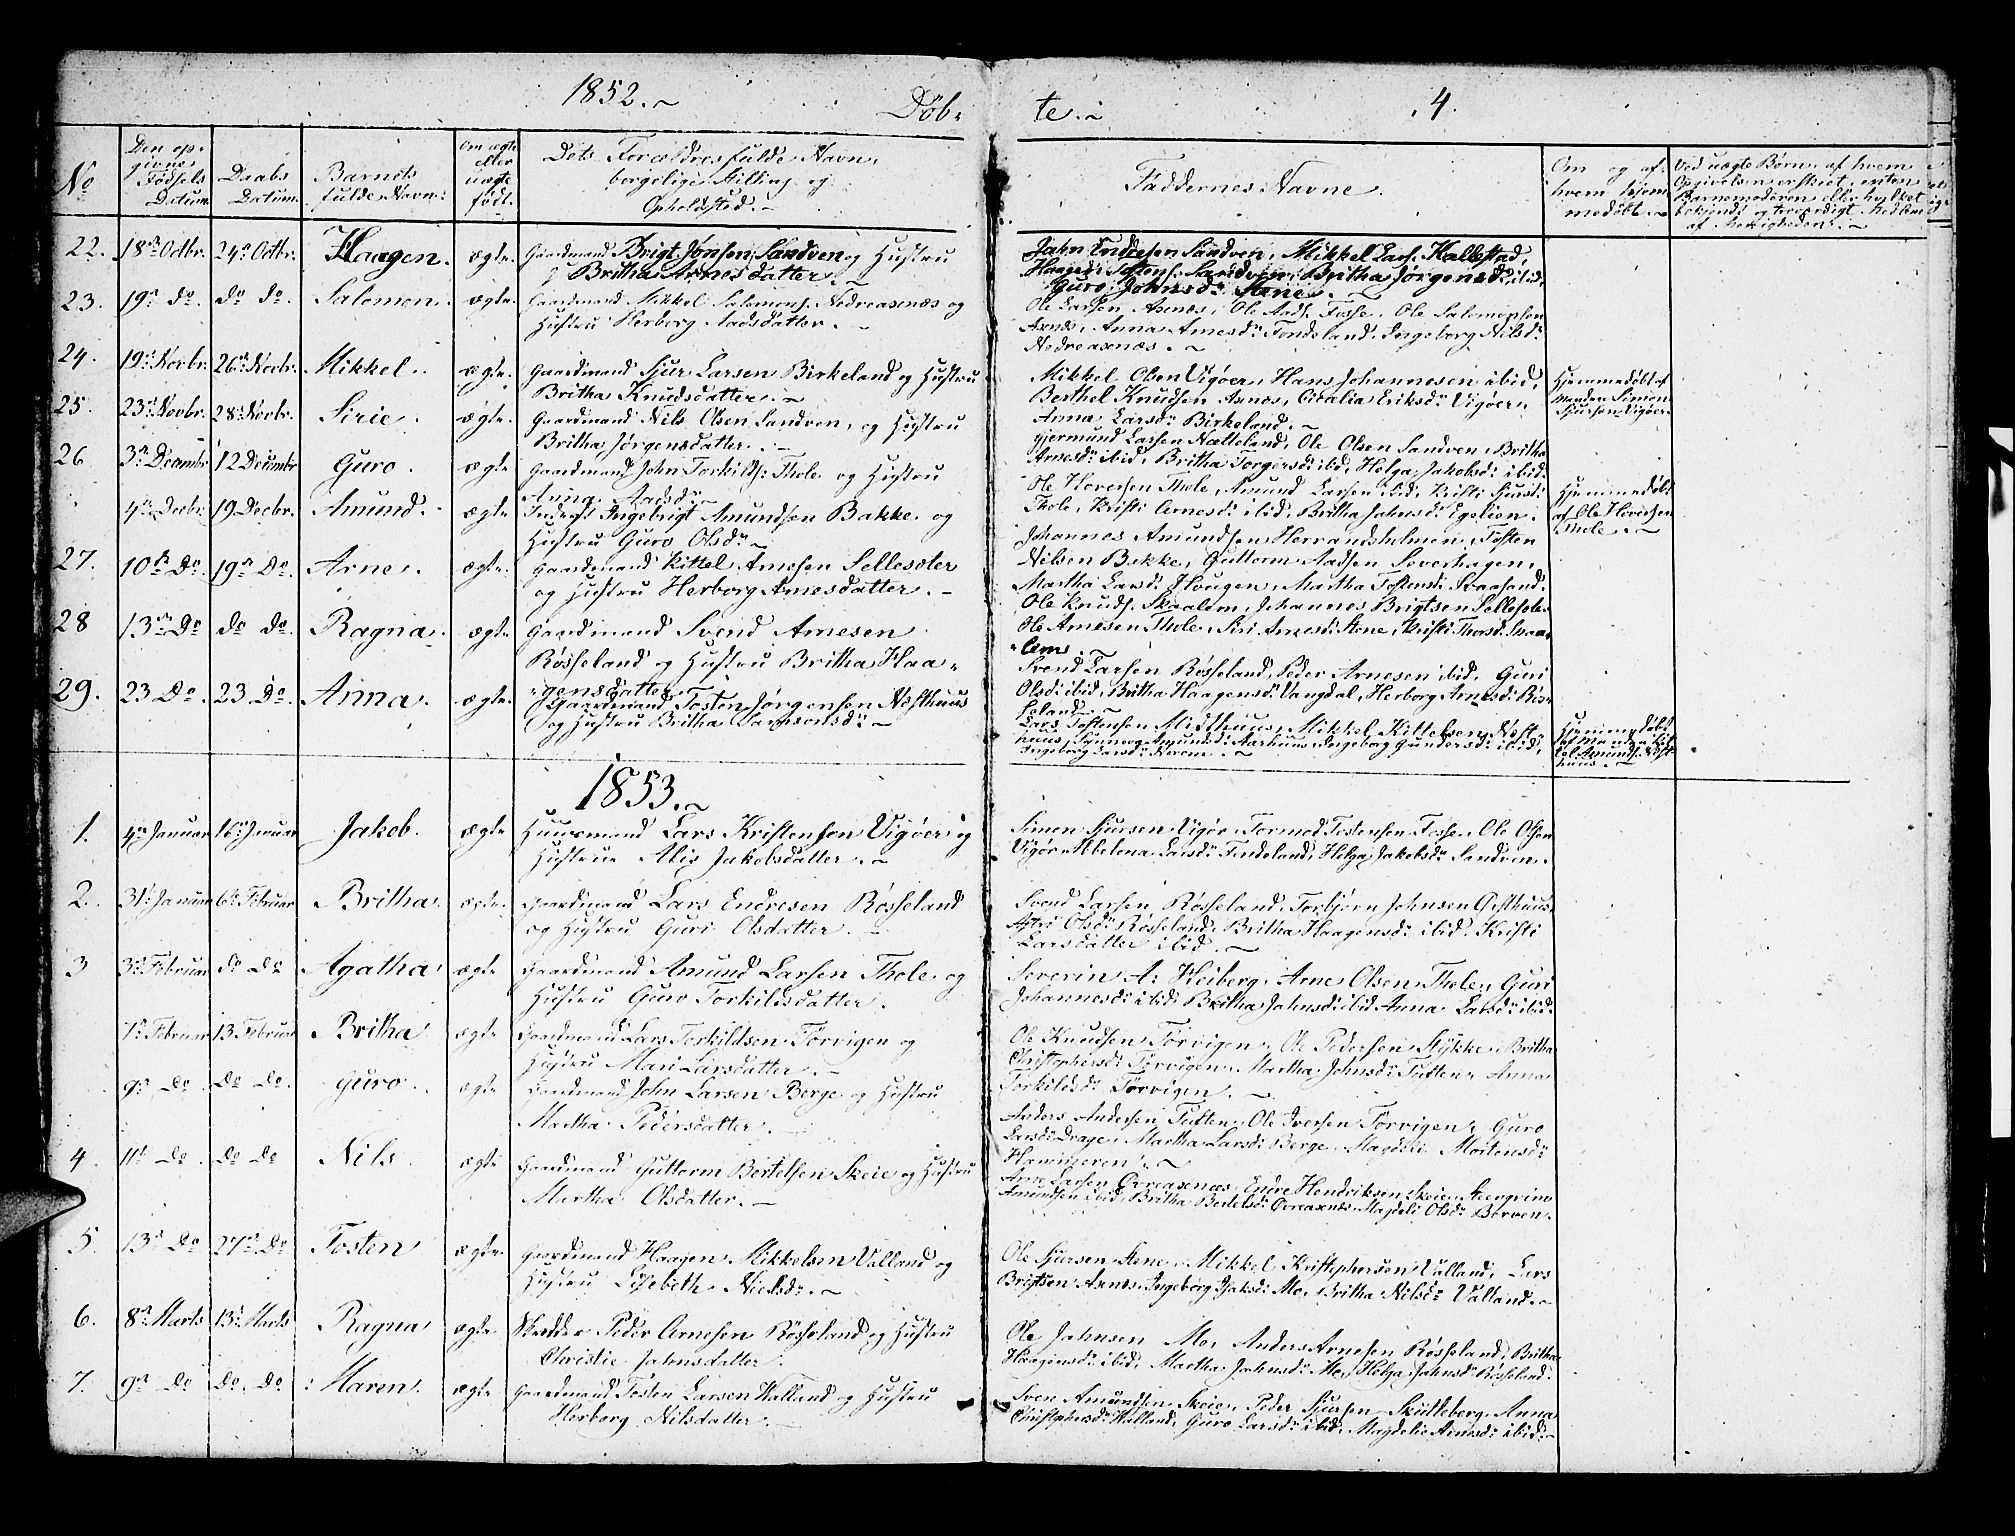 1852.~
Døb-
te.~
4.
No
Den op-
givne
Fødsels
Datum.
Daabs
Datum.
Barnets
fulde Navn.
Om ægte
eller
uægte
født.
Dets Forældres fulde Navn,
borgelige Stilling og
Opholdsted.~
Faddernes Navne.
Om og af
hvem hjem-
medøbt.~
Ved uægte Børn, af hvem
Opgivelsen er skeet, enten
Barnemoderen eller hvilket
bekjendt og troværdigt Medlem
af Menigheden.~
22. 18de Octbr. 24de Octbr. Haagen. ægte. Gaardmand Brigt Jonsen Sandven og Hustru
Britha Arnesdatter.~
John Endresen Sandven, Mikkel Lars. Kallestad,
Haagen Tostens. Sandven, Britha Jørgensd: ibid,
Guro Johnsd: Stene.~
23. 19de do. do do. Salomon. ægte. Gaardmand Mikkel Salomons. Nedreaxnæs og
Hustru Herborg Aadsdatter.~
Ole Larsen Axnæs, Ole Aads. Fosse, Ole Salomonsen
Axnæs, Anna Arnesd: Fondeland, Ingeborg Nilsd:
Nedreaxnæs.~
24. 19de Novbr. 26de Novbr. Mikkel. ægte. Gaardmand Sjur Larsen Birkeland og Hustru
Britha Knudsdatter.~
Mikkel Olsen Vigøer, Hans Johannesen ibid,
Berthel Knudsen Axnæs, Cicilia Eriksd: Vigøer,
Anna Larsd: Birkeland.~
Hjemmedøbt af
Manden Simon
Sjursen Vigøer
25. 23de Novbr. 28de Novbr. Sirie. ægte. Gaardmand Nils Olsen Sandven, og Hustru
Britha Jørgensdatter.~
Gjermund Larsen Nætteland, Ole Olsen Sandven, Britha
Arnesd: ibid, Britha Torgersd: ibid, Helga Jakobsd: ibid.
26 3de Decembr 12 Decembr Guro. ægte Gaardmand John Torkilds: Thole og Hustru
Anna Aadsd:~
Ole Haversen Thole, Amund Larsen ibid, Kristi Sjursd:
Thole, Kristi Arnesd: ibid, Britha Johnsd:
Hjemmedøbt
af Ole Haversen
Thole.~
4de Decbr. 19 Decbr. Amund. ægte Inderst Ingebrigt Amundsen Bakke og
Hustru Guro Olsd:~
Johannes Amundsen Herrandsholmen, Tosten
Nilsen Bakke, Guttorm Aadsen Soverhagen,
Martha Larsd: Hougen, Martha Tostensd:
27. 10de Do. 19de Do. Arne. ægte. Gaardmand Kittel Arnesen Sellesæter
og Hustru Herborg Arnesdatter.~
Ole Knuds. Skaalem, Johannes Brigtsen Sellesæter
Ole Arnesen Thole, Siri Arnesd: Stene, Kristi Thorsd: Skaa-
lem.~
28 13de Do do do. Ragna. ægte Gaardmand Svend Arnesen
Røsseland og Hustru Britha Haa-
gensdatter.~
Svend Larsen Røsseland, Peder Arnesen ibid, Guri
Olsd: ibid, Britha Haagensd: Vangdal, Herborg Arnesd: Røs-
seland.~
29. 23 Do. 23 Do. Anna. ægte. Gaardmand Tosten Jørgensen Næsthuus
og Hustru Britha Samsonsd:~
Lars Tostensen Midthuus, Mikkel Kittelsen Næst-
huus, Synneva Amundsd: Aarhuus, Ingeborg Gundersd: ibid,
Ingeborg Larsd:
Hjemmedøbt
af Manden Kit-
tel Amunds. Næst-
huus.~
1853.~
1. 4de Januar 16de Januar Jakob. ægte Huusmand Lars Kristensen Vigøer og
Hustrue Alis Jakobsdatter.~
Simon Sjursen Vigør, Tormod Tostensen Fosse, Ole Olsen
Vigør, Abbelona Larsd: Findeland, Helga Jakobsd: Sandven.
2. 31te Januar 6te Februar Britha. ægte. Gaardmand Lars Endresen Røsseland
og Hustru Guri Olsdatter.~
Svend Larsen Røsseland, Torbjørn Johnsen
Olsd: Røsseland, Britha Haagensd: ibid, Kristi
Larsdatter ibid.~
3 3de Februar do Do Agatha ægte Gaardmand Amund Larsen Thole og
Hustru Guro Torkildsdatter.
Severin A: Heiberg, Arne Olsen Thole, Guri
Johannesd: ibid, Britha Johnsd: ibid Anna Larsd: ibid.
7de Februar 13 Februar Britha ægte Gaardmand Lars Torkildsen Tørvigen og
Hustru Mari Larsdatter.~
Ole Knudsen Tørvigen, Ole Pedersen Stykke, Britha
Christophersd: Tørvigen, Martha Johnsd: Tutten, Anna
Torkildsd: Tørvigen.~
9de Do Do Do. Guro. ægte Gaardmand John Larsen Berge og Hustru
Martha Pedersdatter.~
Anders Andersen Tutten, Ole Iversen Tørvigen, Guro
Larsd: Drage, Martha Larsd: Berge, Magdeli Mortensd:
Hammeren.~
4 11te Do. Do Do Nils. ægte Gaardmand Guttorm Bertelsen Skeie og Hustru
Martha Olsdatter.~
Arne Larsen Øvreaxnæs, Endre Hendriksen Skeie, Steengrim
Amundsen ibid, Britha Bertelsd: Øvreaxnæs, Magdeli Olsd: Børven.
5. 13de Do 27de Do Tosten ægte. Gaardmand Haagen Mikkelsen Valland og
Hustru Lisebeth Nielsd:~
Ole Sjursen Stene, Mikkel Kristophersen Valland, Lars
Brigtsen Axnæs, Ingeborg Isaksd: Mo, Britha Nilsd: Valland.~
6. 8de Marts 13de Marts Ragna ægte. Skrædder Peder Arnesen Røsseland og Hustru
Christie Johnsdatter.
Ole Johnsen Mo, Anders Arnesen Røsseland, Britha
Haagensd: ibid, Martha Johnsd: Mo, Helga Johnsd: Røsseland.
7. 9de Do Do. Do. Maren. ægte Gaardmand Tosten Larsen Halland og Hustru
Herborg Nilsdatter.~
Sven Amundsen Skeie, Peder Sjursen Skutleberg, Anna
Christophersd: Halland, Guro Larsd: ibid, Magdelie Arnesd: ibid.~